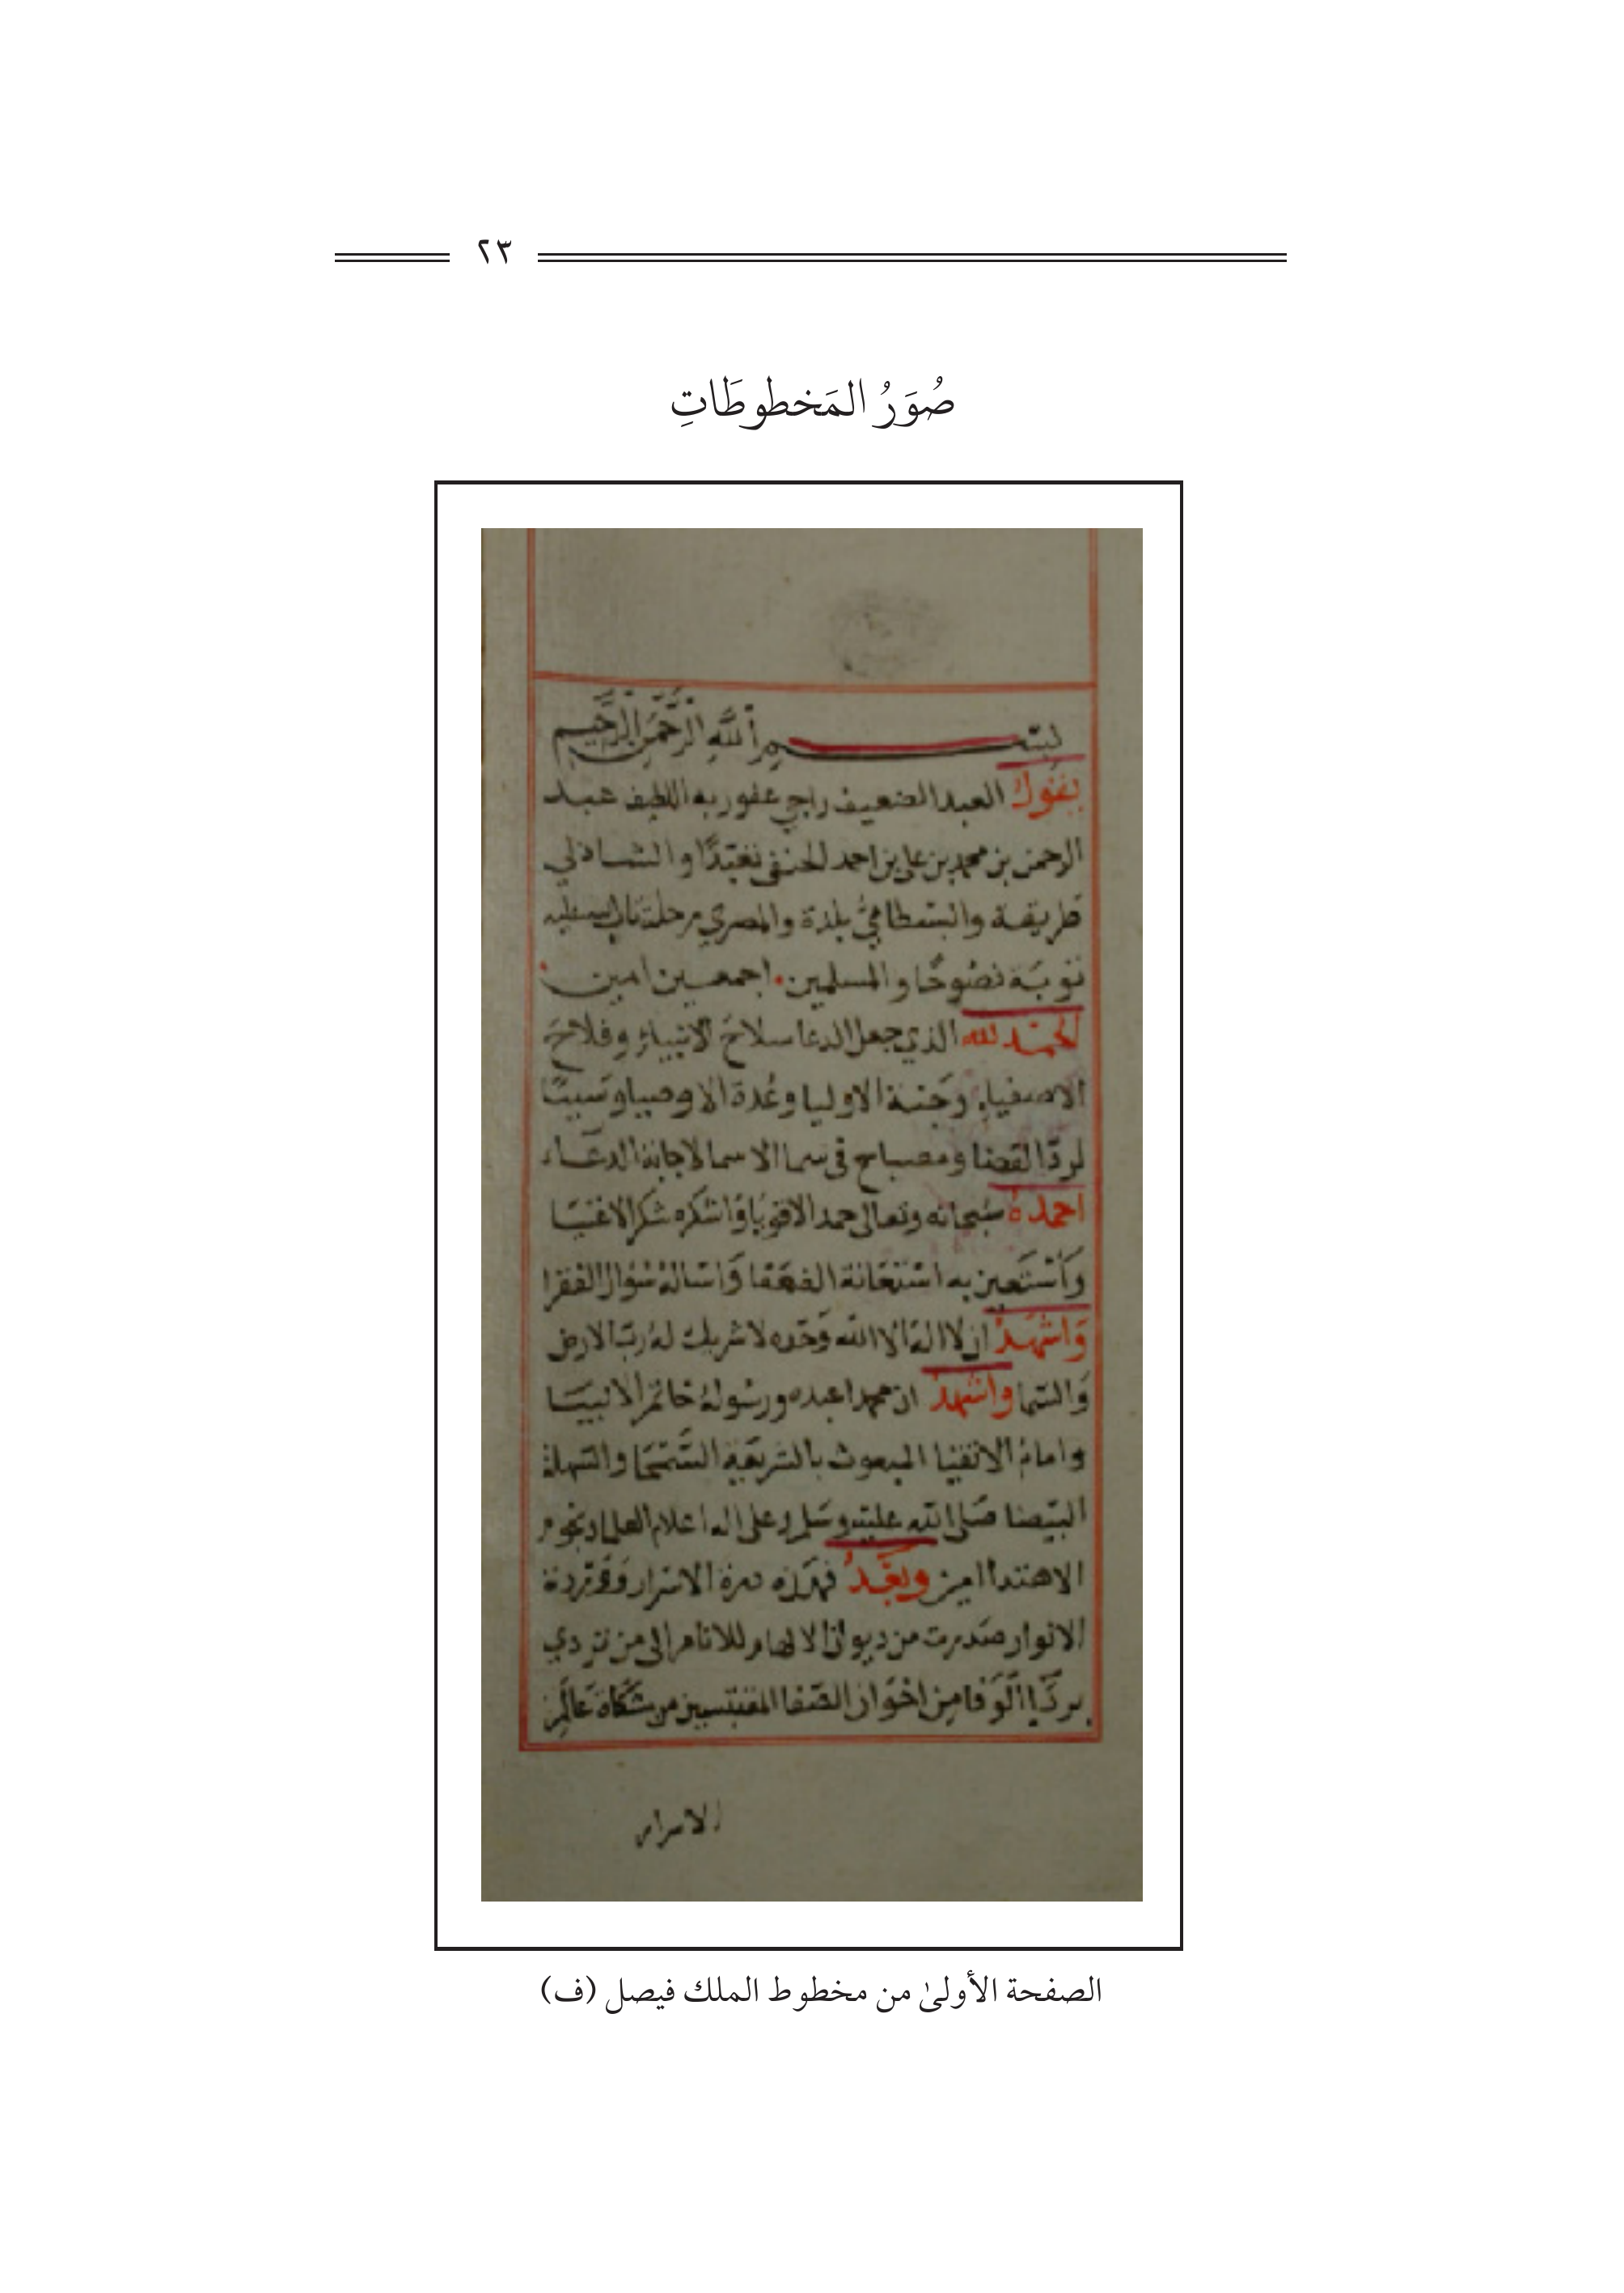 ٢٣
صُوَرُ المَخطوطَاتِ
بسم الله الرحمن الرحيم
يقول العبد الضعيف راجي عفو ربه اللطيف عبد
الرحمن بن محمد بن علي بن احمد الحنفي والشاذلي
طريقة والبسطامي بلدة والمصري
توبة نصوحا والمسلمين اجمعين امين
الحمد لله الذي جعل الدعا سلاح الانبياء وفلاح
الاصفياء وجنة الاوليا وعدة الاوصيا وسببا
لرد القضا ومصباح في سما الاسما لاجابة الدعاء
احمده سبحانه وتعالى حمد الاقويا واشكره شكر الاغنيا
وَأستعين به استعانة الضعفا واساله سؤال الفقرا
واشهد ان لا اله الا الله وحده لا شريك له رب الارض
والسما واشهد ان محمدا عبده ورسوله خاتم الانبيا
وامام الاتقيا المبعوث بالشريعة السمحا والسهلة
البيضا صلى الله عليه وسلم وعلى اله اعلام العلما ونجوم
الاهتدا امين وبعد فهذه درة الاسرار
الانوار صدرت من ديوان الالهام للانام الى من تردي
بردا الوفا من اخوان الصفا المقتبسين من مشكاة عالم
الاسرار
الصفحة الأولىٰ من مخطوط الملك فيصل (ف)